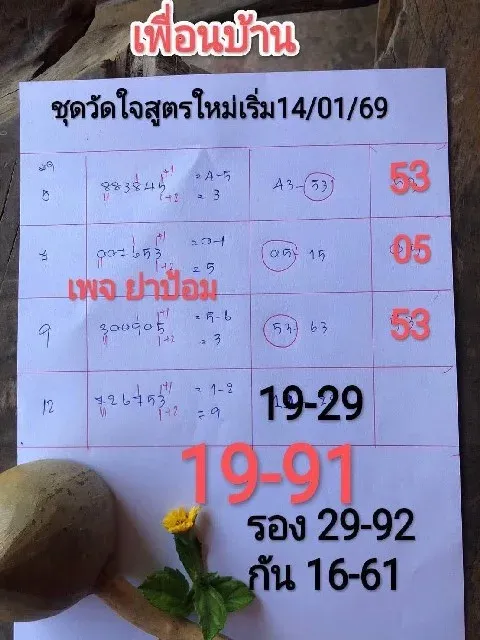 เพื่อนบ้าน
ชุดวัดใจสูตรใหม่เริ่ม14/01/69
883845 = 4-5 43-53 53
= 3
= 0-1 05-15 05
= 5
เพจ ย่าป้อม
9 300905 = 5-6 53-63 53
= 3
12 726753 = 1-2 19-29
= 9
19-91
รอง 29-92
กัน 16-61